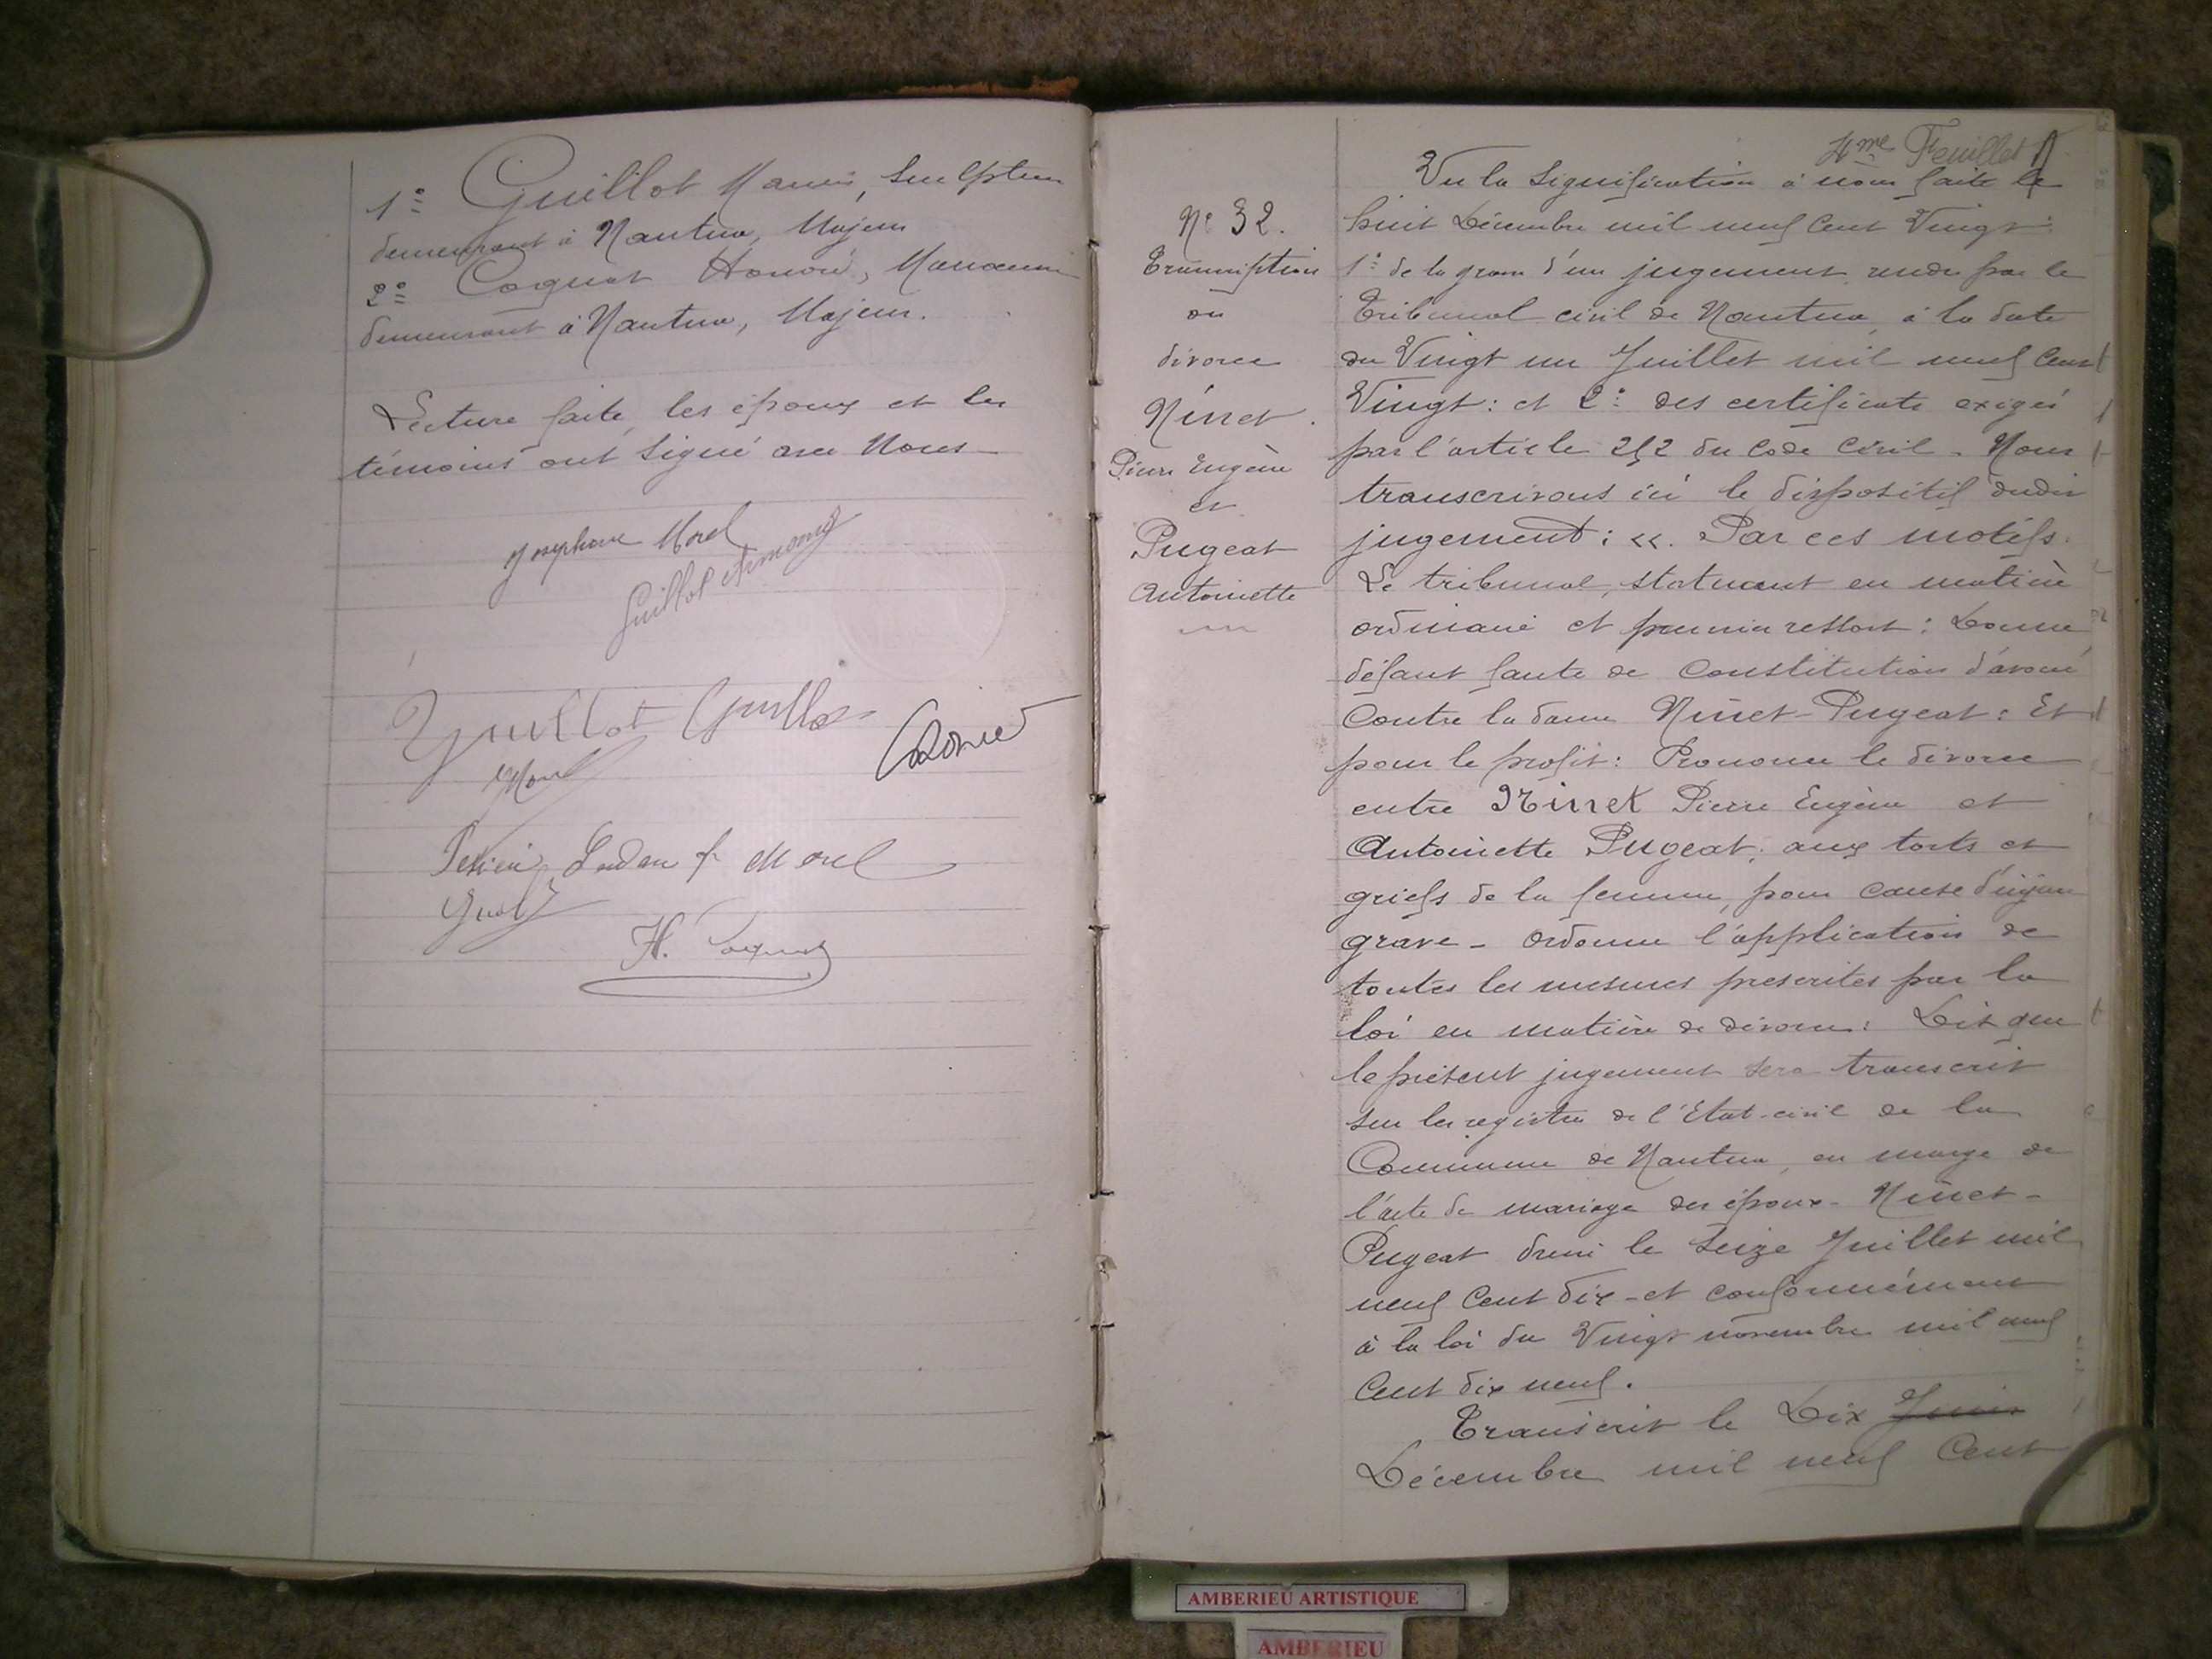 1° Guillot Marius, Sculpteur
demeurant à Nantua, Majeur
2° Coquet Honoré,
demeurant à Nantua, Majeur.
Lecture faite, les époux et les
témoins ont signé avec Nous
Josephine Morel
Guillot
Guillot Guillot
Morel
Morel
H. Coquet
4me Feuillet
N° 32.
Transcription
du
divorce
Ninet
Pierre Eugène
et
Pugeat
Antoinette
Vu la signification à nous faite le
huit Décembre mil neuf cent Vingt:
1° de la grosse d'un jugement rendu par le
Tribunal civil de Nantua, à la date
du Vingt un Juillet mil neuf cent
Vingt: et 2° des certificats exigés
par l'article 252 du Code Civil - Nous
transcrivons ici le dispositif dudit
jugement: «. Par ces motifs.
Le tribunal, statuant en matière
ordinaire et premier ressort: Donne
défaut faute de Constitution d'avoué
contre la dame Ninet-Pugeat: Et
pour le profit: Prononce le divorce
entre Ninet Pierre Eugène et
Antoinette Pugeat; aux torts et
griefs de la femme, pour cause d'injure
grave - Ordonne l'application de
toutes les mesures prescrites par la
loi en matière de divorce: Dit que
le présent jugement sera transcrit
sur les registres de l'Etat-civil de la
Commune de Nantua, en marge de
l'acte de mariage des époux - Ninet-
Pugeat dressé le Seize Juillet mil
neuf cent dix - et conformément
à la loi du Vingt novembre mil neuf
Cent dix neuf.
Transcrit le Dix Juin
Décembre mil neuf Cent
AMBERIEU ARTISTIQUE
AMBERIEU